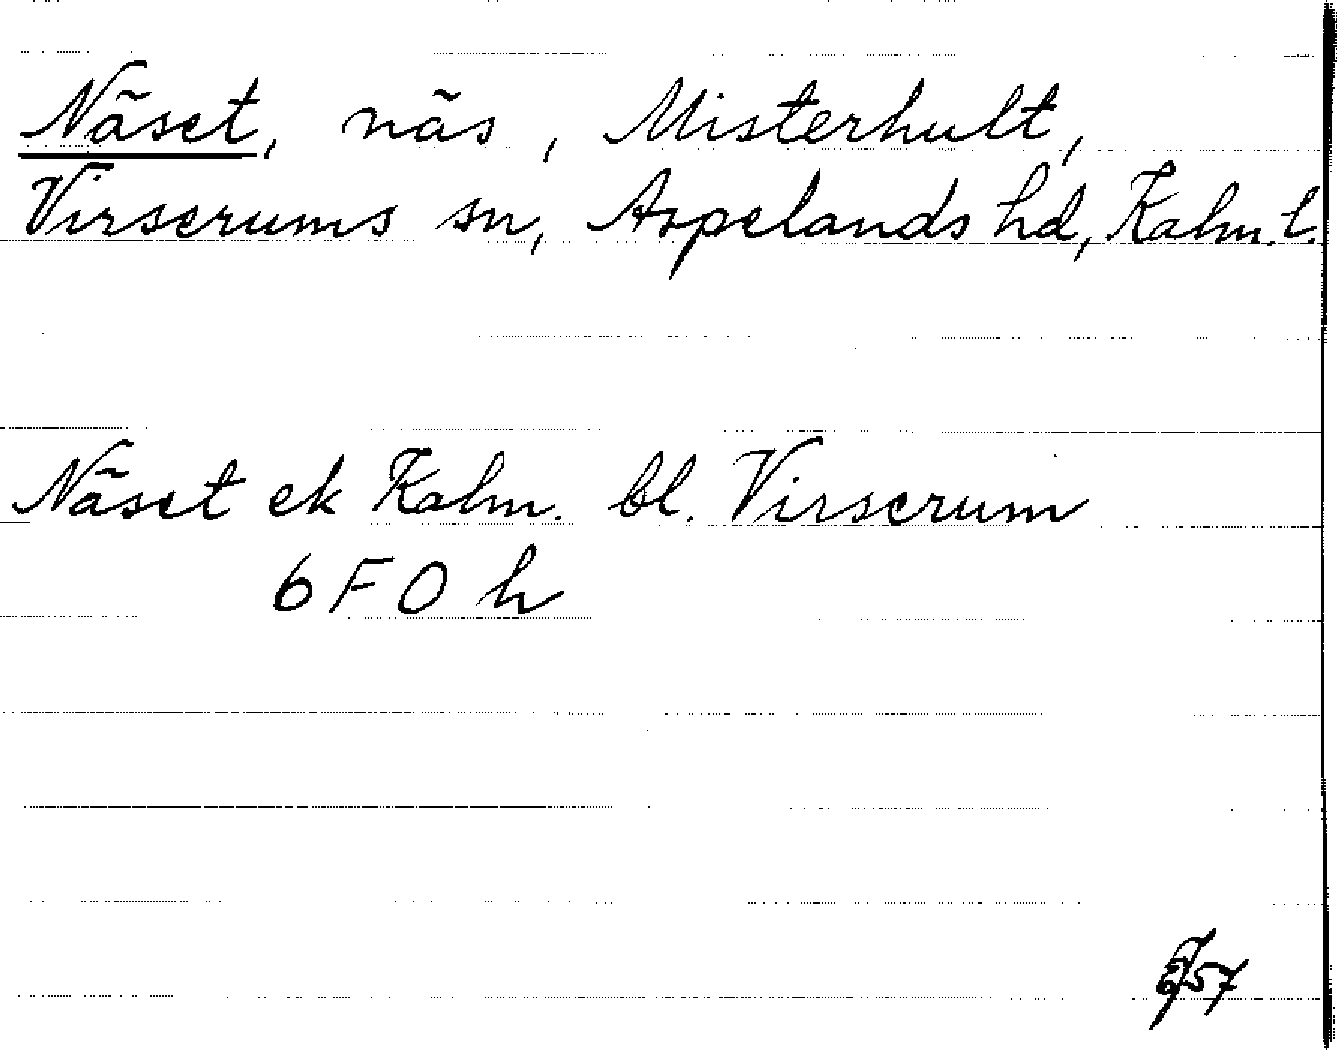 Näset, näs, Misterhult,
Virserums sn, Aspelands hd, Kalm. l.
Näset ek Kalm. bl. Virserum
6 F O h